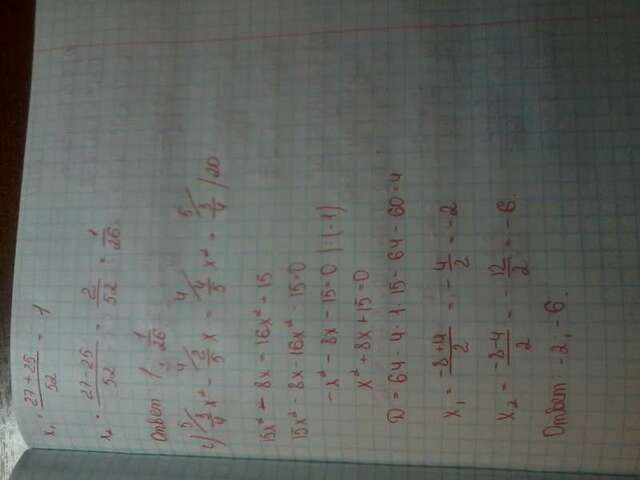 x₁ = (27+25)/52 = 1
x₂ = (27-25)/52 = 2/52 = 1/26.
Ответ 1, 1/26.
⁵/ 3/4 x² - ⁴/ 2/5 x = ⁴/ 4/5 x² + ⁵/ 3/4 / 20
15x² - 8x = 16x² + 15
15x² - 8x - 16x² - 15 = 0
-x² - 8x - 15 = 0 | : (-1)
x² + 8x + 15 = 0
D = 64 - 4 · 1 · 15 = 64 - 60 = 4
x₁ = (-8+4)/2 = -4/2 = -2
x₂ = (-8-4)/2 = -12/2 = -6.
Ответ: -2, -6.